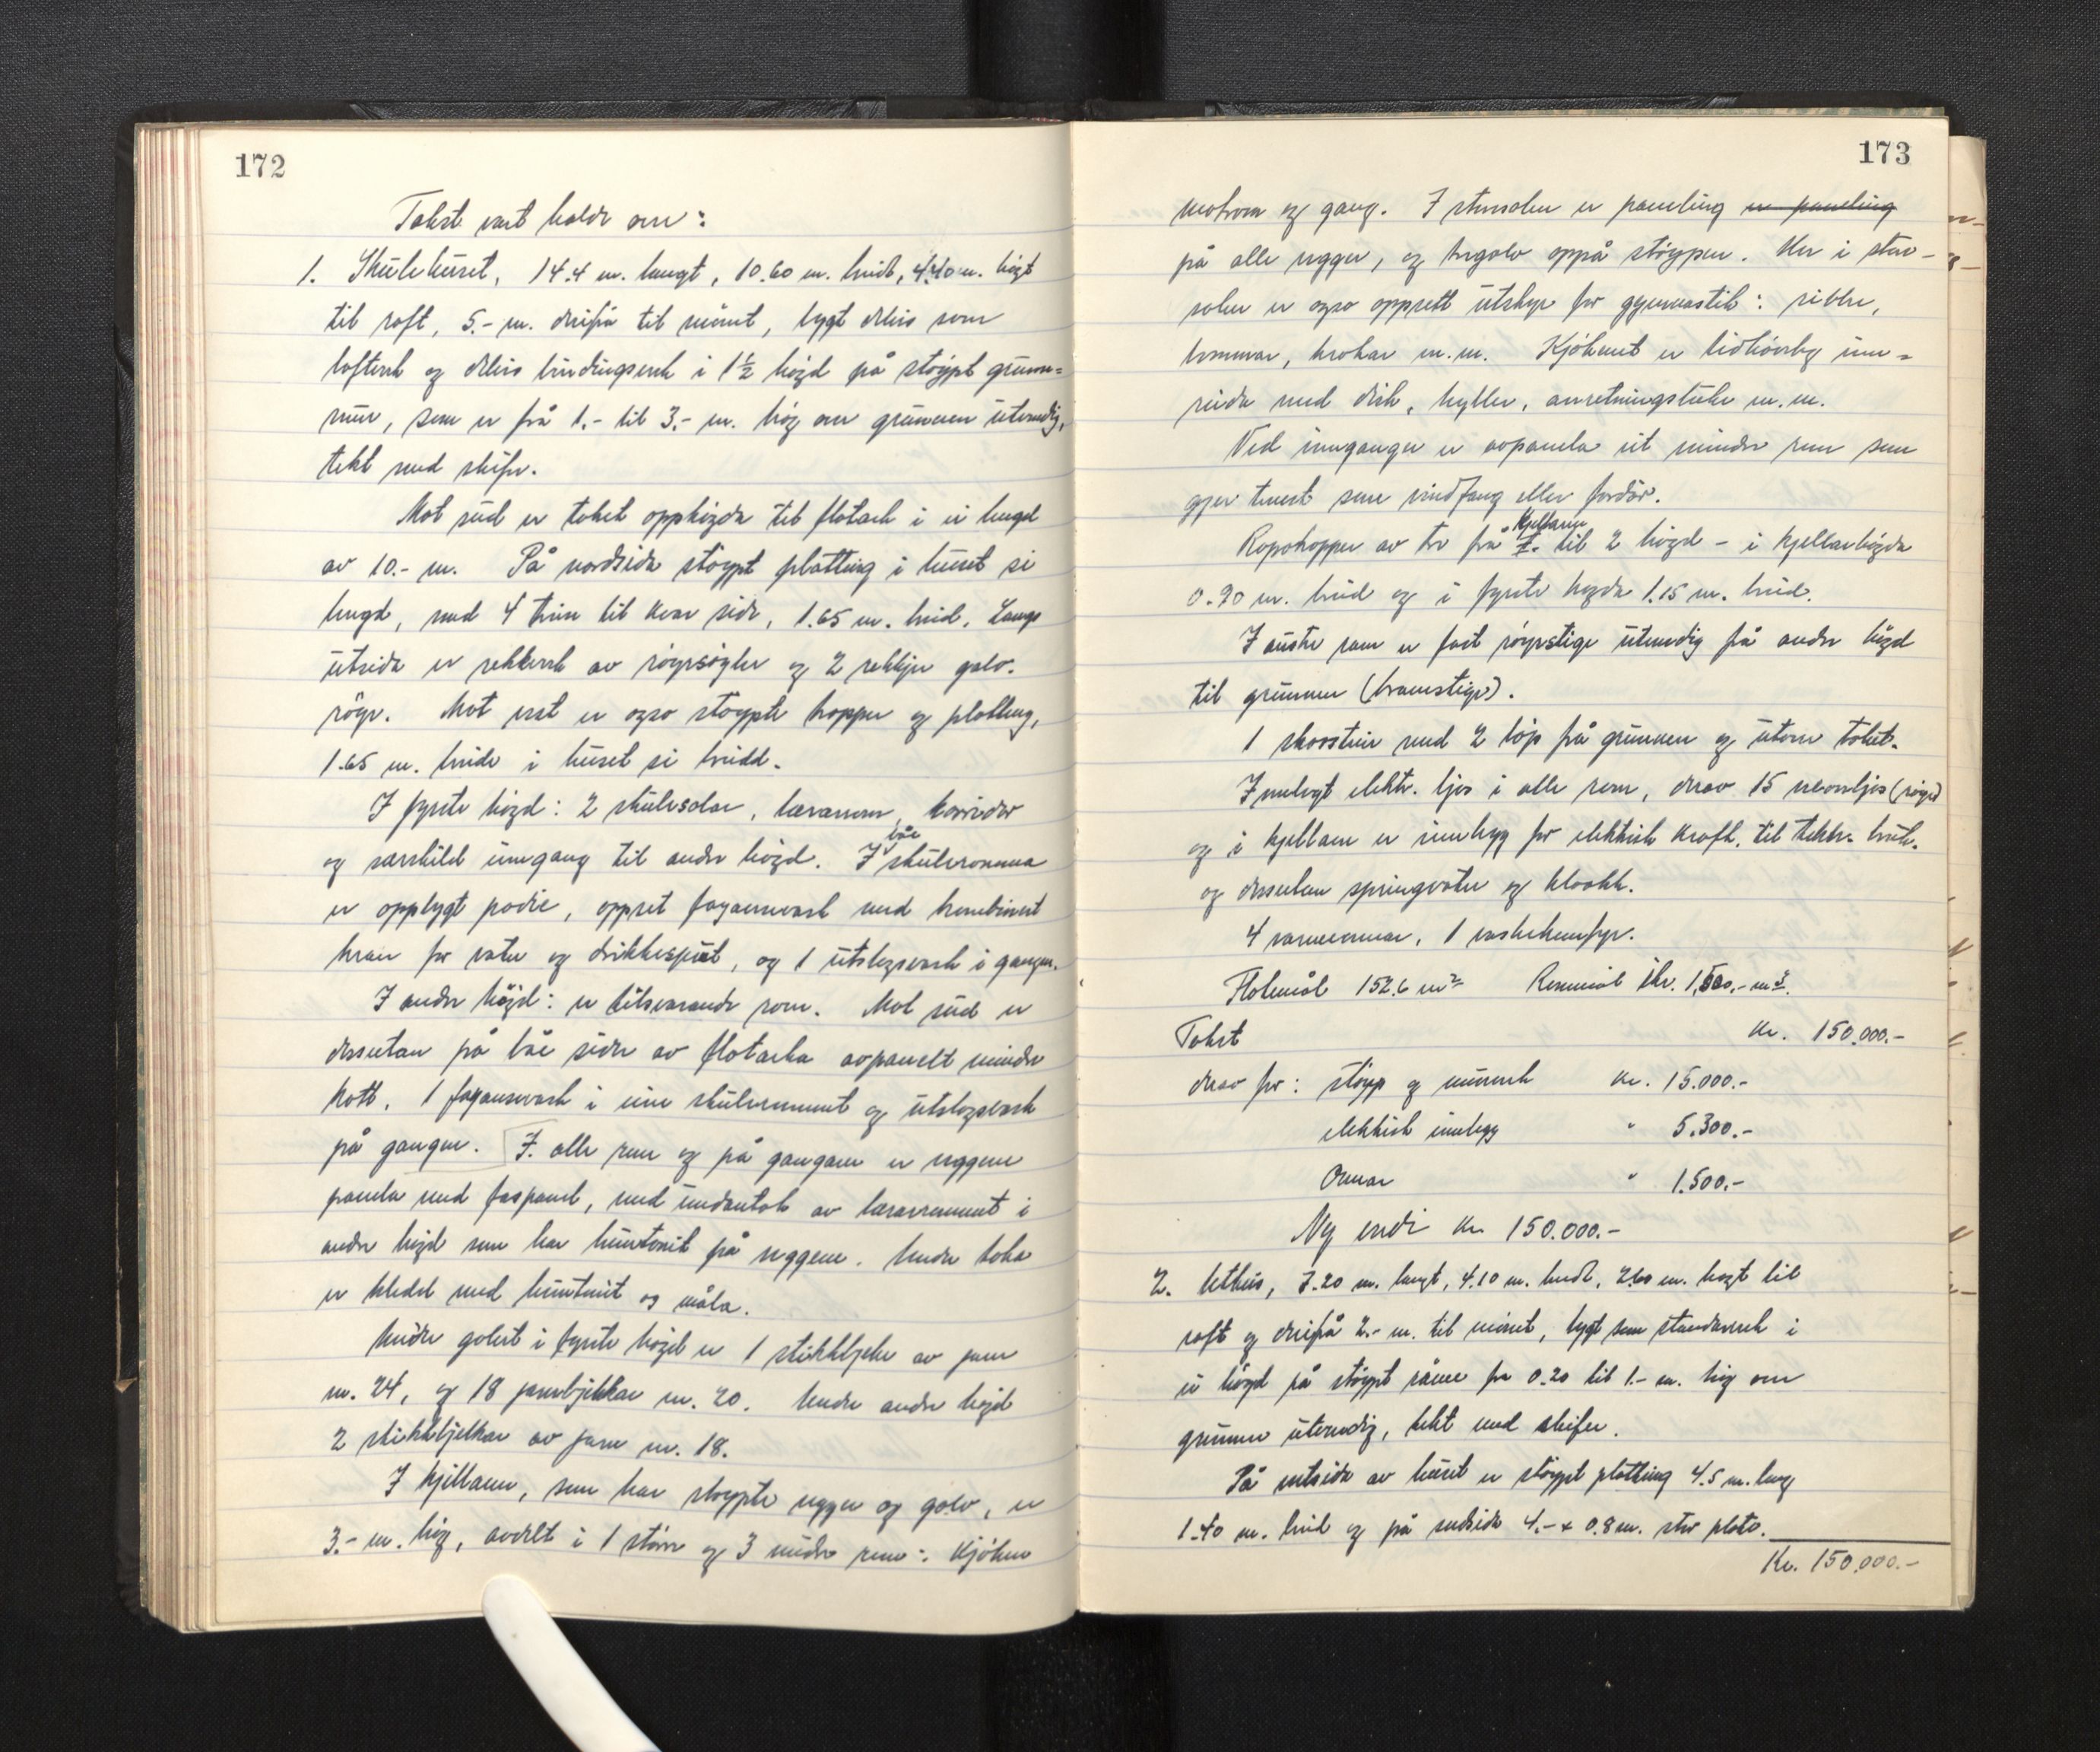 172
Takst vart halde over:
1. Skulehuset, 14.4 m. langt, 10.60 m. breidt, 4.40 m. högt
til raft, 5.- m. derifrå til mönet, bygt delvis som
lafteverk og delvis bindingsverk i 1½ högd på stöypt grunn=
mur, som er frå 1.- til 3.- m. höy over grunnen utvendig,
tekt med skifer.
Mot sud er taket opphögda til flatark i ei lengd
av 10.- m. På nordsida stöypt platting i huset si
lengd, med 4 trin til kvar side, 1.65 m. breid. Langs
utsida er rekkverk av röyrsöyler og 2 rekkjer galv.
röyr. Mot vest er også stöypte trapper og platting,
1.65 m. breide i huset si breidd.
I fyrste högd: 2 skulesalar, lærarrom, korridor
og særskild inngang til andre högd. I båe skuleromma
er oppbygt podie, oppset fayansevask med kombinert
kran for vatn og drikkesprut, og 1 utslagsvask i gangen.
I andre högd: er tilsvarande rom. Mot sud er
dessutan på båe sider av flatarka avpanelt mindre
kott. 1 fayansevask i eine skulerommet og utslagsvask
på gangen. I alle rom og på gangane er veggene
panela med faspanel, med undantak av lærarrommet i
andre högd som har huntonit på veggene. Under taka
er kledd med huntonit og måla.
Under golvet i fyrste högd er 1 stikkbjelke av jarn
nr. 24, og 18 jarnbjelkar nr. 20. Under andre högd
2 stikkbjelkar av jarn nr. 18.
I kjellaren, som har stöypte vegger og golv, er
3.- m. hög, avdelt i 1 större og 3 mindre rom: Kjöken
173
matrom og gang. I storsalen er paneling er paneling
på alle vegger, og tregolv oppå stöypen. Her i stor-
salen er også oppsett utstyr for gymnastikk: ribber,
bommar, krokar m.m. Kjökenet er tidhöveleg inn=
reida med disk, hyller, anretningsbuke m.m.
Ved inngangen er avpanela eit mindre rom som
gjer tenest som vindfang eller fordör.
Reposkapper av tre frå kjellaren 1. til 2 högd - i kjellarhögda
0.90 m. breid og i fyrste högda 1.15 m. breid.
I austre rom er fast röyrstige utvendig frå andre högd
til grunnen (brannstige).
1 skorstein med 2 löp frå grunnen og utover taket.
Innlegt elektr. ljos i alle rom, derav 15 neonljos (röyr)
og i kjellaren er innlegg for elektrisk kraft. til tekn. bruk.
og dessutan springvatn og kloakk.
4 varmeomnar, 1 vaskekomfyr.
Flatemål 152.6 m² Rommål ikr. 1,500,- m³.
Takst Kr. 150.000.-
derav for: stöyp og murverk Kr. 15.000.-
elektrisk innlegg " 5.300.-
Omnar " 1.500.-
Ny verdi Kr. 150.000.-
2. Uthus, 7.20 m. langt, 4.10 m. breidt, 2.60 m. högt til
raft og derifrå 2.- m. til mönet, bygt som standarverk i
ei högd på stöypt råme frå 0.20 til 1.- m. hög over
grunnen utvendig, tekt med skifer.
På vestsida av huset er stöypt platting 4.5 m. lang
1.40 m. breid og på sudsida 4.- x 0.8 m. stor plate.
Kr. 150.000.-